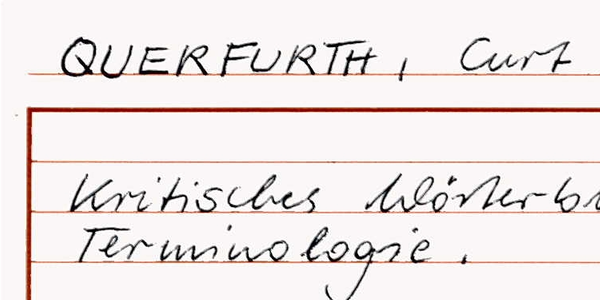 QUERFURTH, Curt
Kritisches Wörterbu
Terminologie.